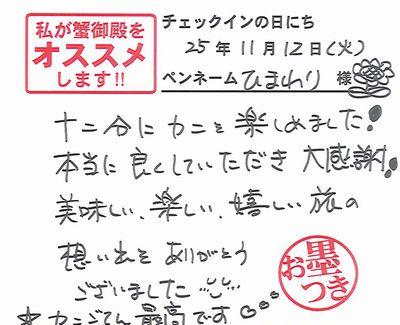 私が蟹御殿を
オススメ
します!!
チェックインの日にち
25年11月12日(火)
ペンネーム ひまわり 様
十二分にカニを楽しめました!
本当に良くしていただき 大感謝!
美味しい、楽しい、嬉しい旅の
想い出を ありがとう
ございました
お墨つき
☆カニごてん 最高です